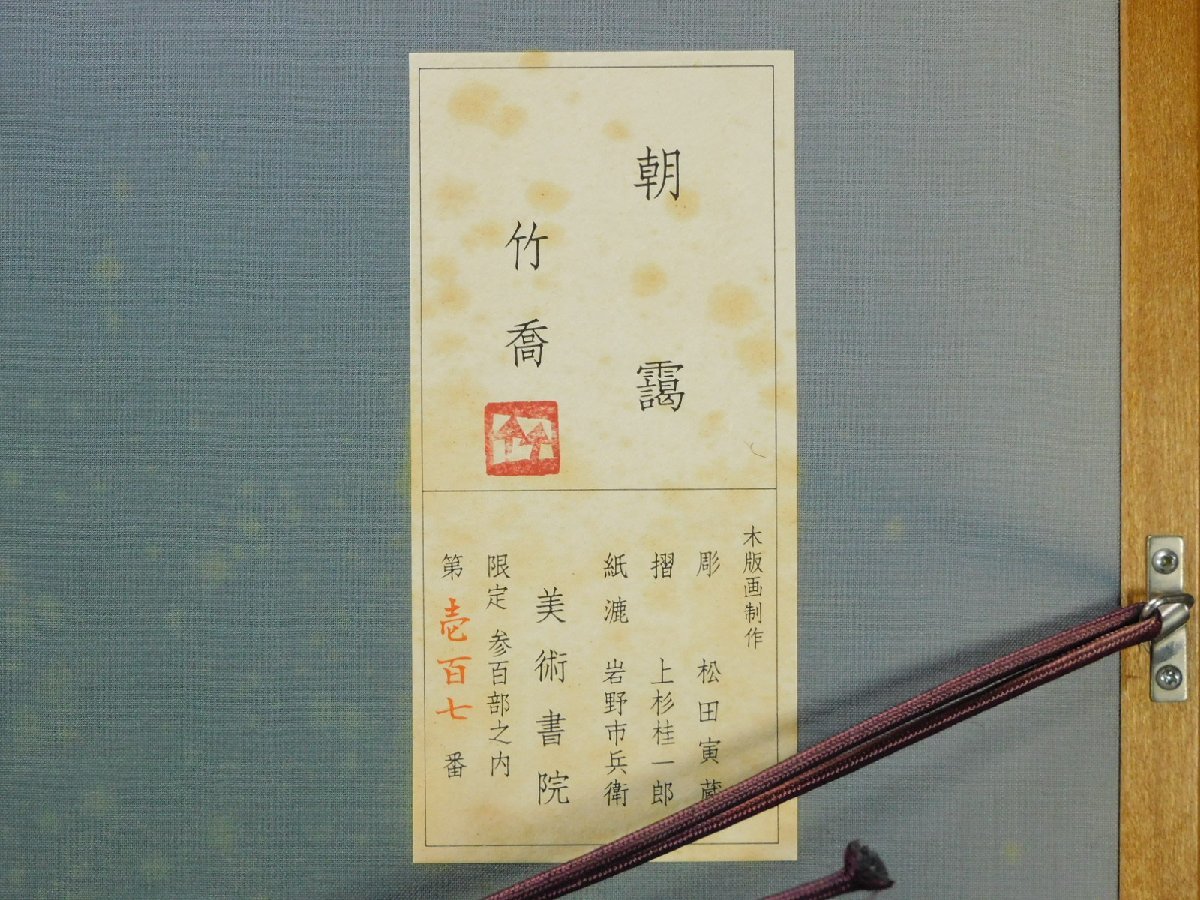 朝靄
竹喬
木版画制作
彫 松田寅蔵
摺 上杉桂一郎
紙漉 岩野市兵衛
美術書院
限定 参百部之内
第 壱百七 番